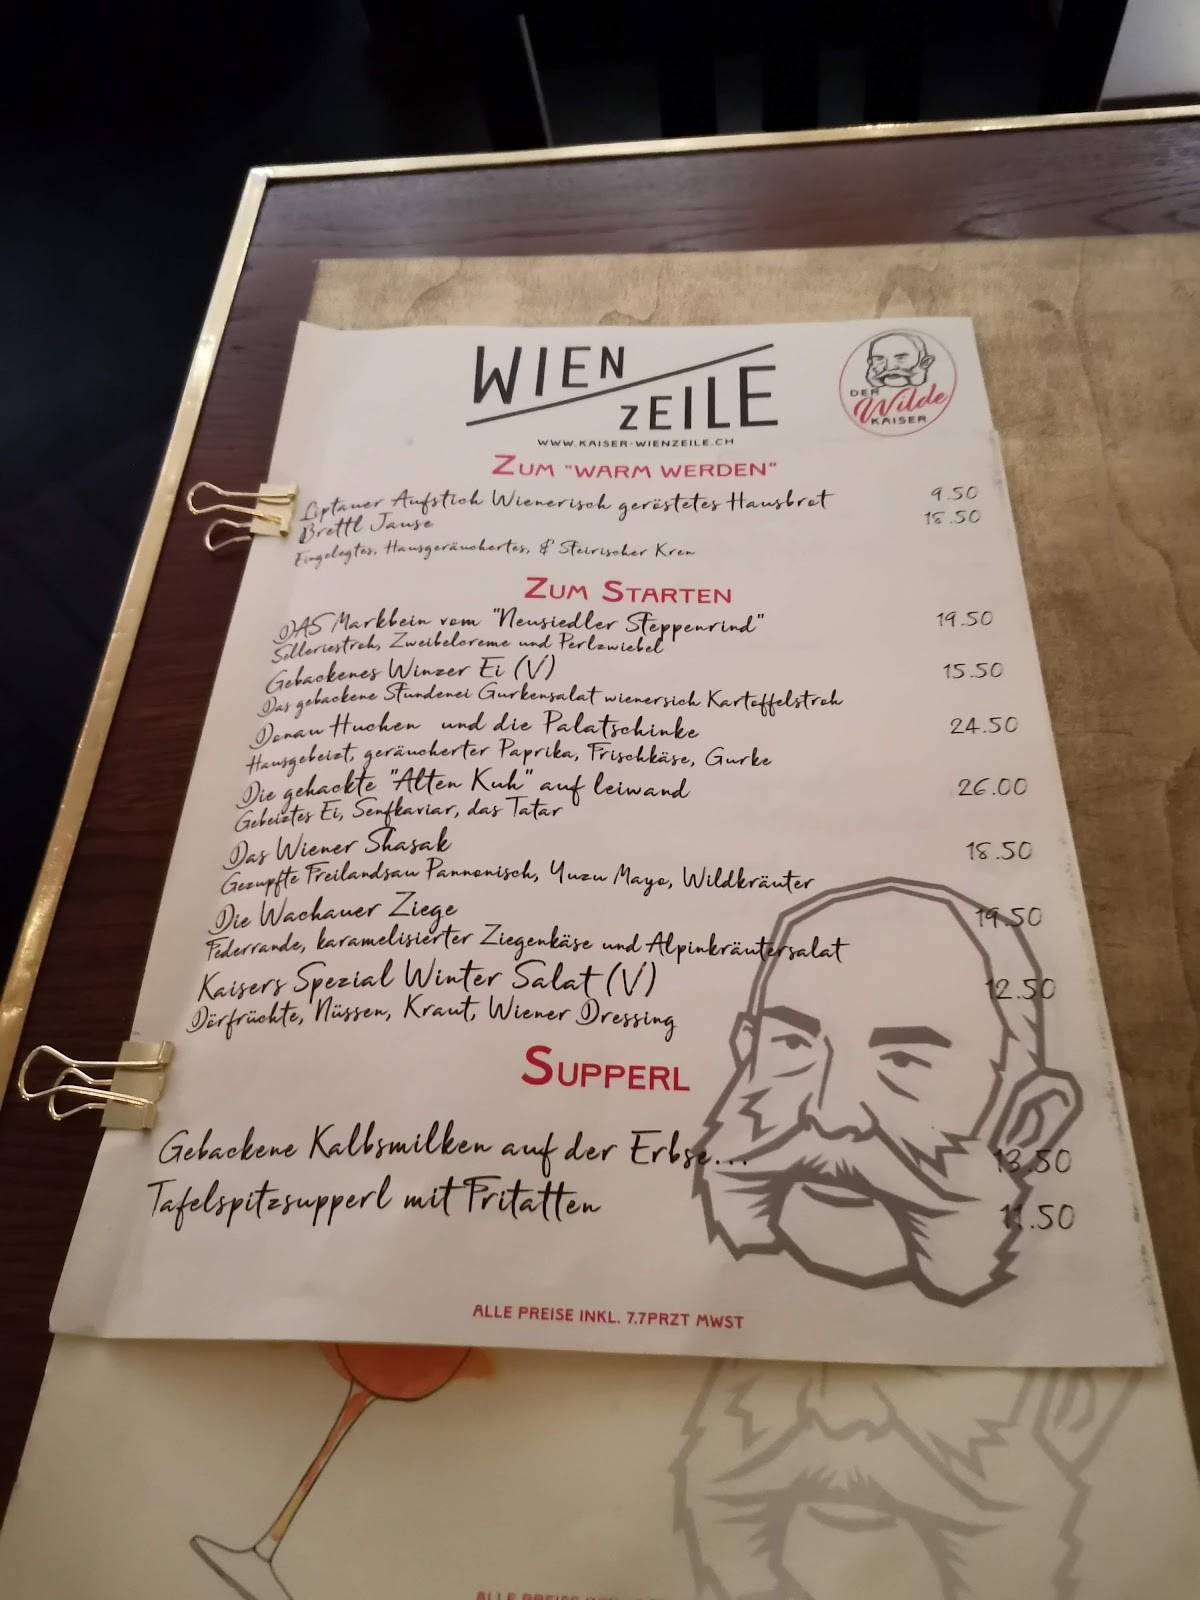 WIEN
ZEILE
DER
Wilde
KAISER
WWW.KAISER-WIENZEILE.CH
ZUM "WARM WERDEN"
Liptauer Aufstich Wienerisch geröstetes Hausbrot 9.50
Brettl Jause 18.50
Eingelegtes, Hausgeräuchertes, & Steirischer Kren
ZUM STARTEN
DAS Markbein vom "Neusiedler Steppenrind" 19.50
Selleriestroh, Zweibelcreme und Perlzwiebel
Gebackenes Winzer Ei (V) 15.50
Das gebackene Stundenei Gurkensalat wienersich Kartoffelstroh
Donau Huchen und die Palatschinke 24.50
Hausgebeizt, geräucherter Paprika, Frischkäse, Gurke
Die gehackte "Alten Kuh" auf leiwand 26.00
Gebeiztes Ei, Senfkaviar, das Tatar
Das Wiener Shasak 18.50
Gezupfte Freilandsau Pannonisch, Yuzu Mayo, Wildkräuter
Die Wachauer Ziege 19.50
Federrande, karamelisierter Ziegenkäse und Alpinkräutersalat
Kaisers Spezial Winter Salat (V) 12.50
Dörfrüchte, Nüssen, Kraut, Wiener Dressing
SUPPERL
Gebackene Kalbsmilken auf der Erbse... 13.50
Tafelspitzsupperl mit Fritatten 11.50
ALLE PREISE INKL. 7.7PRZT MWST
ALLE PREISE